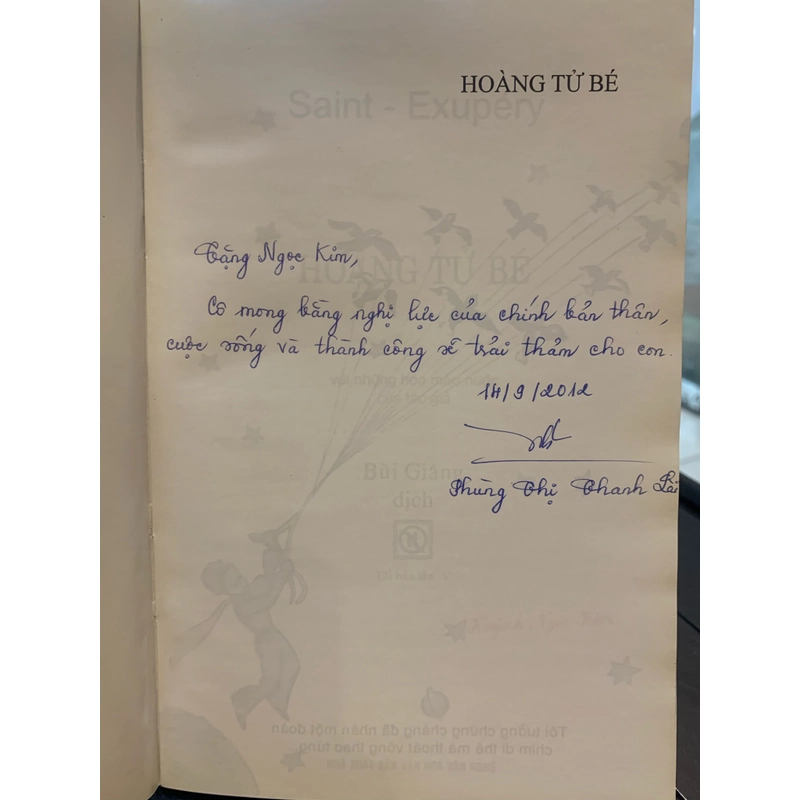 HOÀNG TỬ BÉ
Saint - Exupery
Tặng Ngọc Kim,
HOÀNG TỬ BÉ
Cô mong bằng nghị lực của chính bản thân,
cuộc sống và thành công sẽ trải thảm cho con.
14/9/2012
Bùi Giáng
dịch
Phùng Thị Thanh Lài
Tôi tưởng chừng chàng đã nhân một đoàn
chim di thê mà thoát vòng thao túng